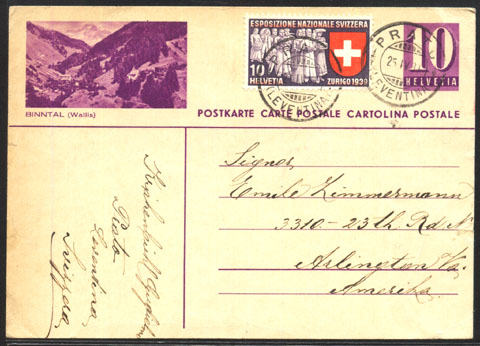 BINNTAL (Wallis)
ESPOSIZIONE NAZIONALE SVIZZERA
10
HELVETIA
ZURIGO 1939
PRATO
(LEVENTINA)
PRATO
25.
(LEVENTINA)
10
HELVETIA
POSTKARTE CARTE POSTALE CARTOLINA POSTALE
Signor
Emile Zimmermann
3310-23th Rd N
Arlington Va.
Amerika
Prato
Leventina
Svizzera